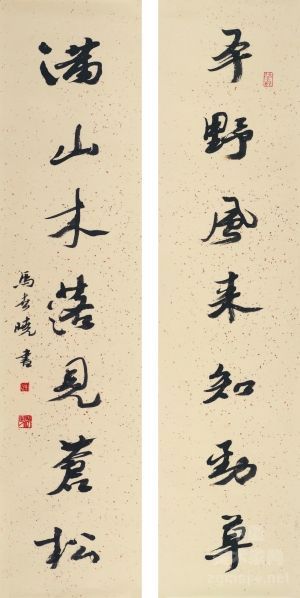 平野風来知勁草
滿山木落見蒼松
馬世曉書